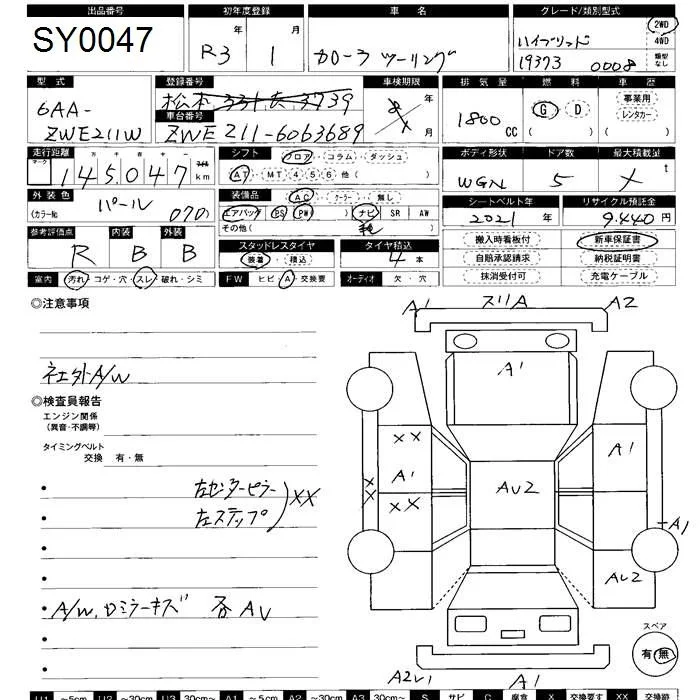 出品番号 初年度登録 車名 グレード/類別型式
SY0047 年 月 ハイブリッド 2WD
R3 1 カローラツーリング 4WD
19373 0008 類型なし
型式 登録番号 車検期限 排気量 燃料 車歴
6AA- 松本 331 年 1800 G D 事業用
ZWE211W 車台番号 月 CC レンタカー
ZWE211-6063689 ( ) ( )
走行距離 シフト フロア・コラム・ダッシュ ボディ形状 ドア数 最大積載量
マーク 十 万 千 百 十 一 マイル
145,047 km AT・MT(4 5 6 他) WGN 5 t
外装色 装備品 AC・クーラー・無し シートベルト年 リサイクル預託金
パール エアバッグ PS PW ( ) ナビ SR AW 2021 年 9,440 円
(カラーNo. 070) その他( 革 )
参考評価点 内装 外装 スタッドレスタイヤ タイヤ積込 搬入時看板付 新車保証書
R B B 装着・積込 4 本 自賠承認請求 納税証明書
室内 汚れ・コゲ・穴・スレ・破れ・シミ FW ヒビ・A・交換要 オーディオ 欠・穴 抹消受付可 充電ケーブル
◎注意事項
社外A/W
◎検査員報告
エンジン関係
(異音・不調等)
タイミングベルト
交換 有・無
左センターピラー
左ステップ
XX
A/W, ロミラーキズ 各AU
A1 スリA A2
A1
XX
A1
XX
XX
AU2
A1
A1
AU2
A2L1 A1
スペア
有・無
U1 ~5cm U2 ~30cm U3 30cm~ A1 ~5cm A2 ~30cm A3 30cm~ S サビ C 腐食 X 交換要す XX 交換跡